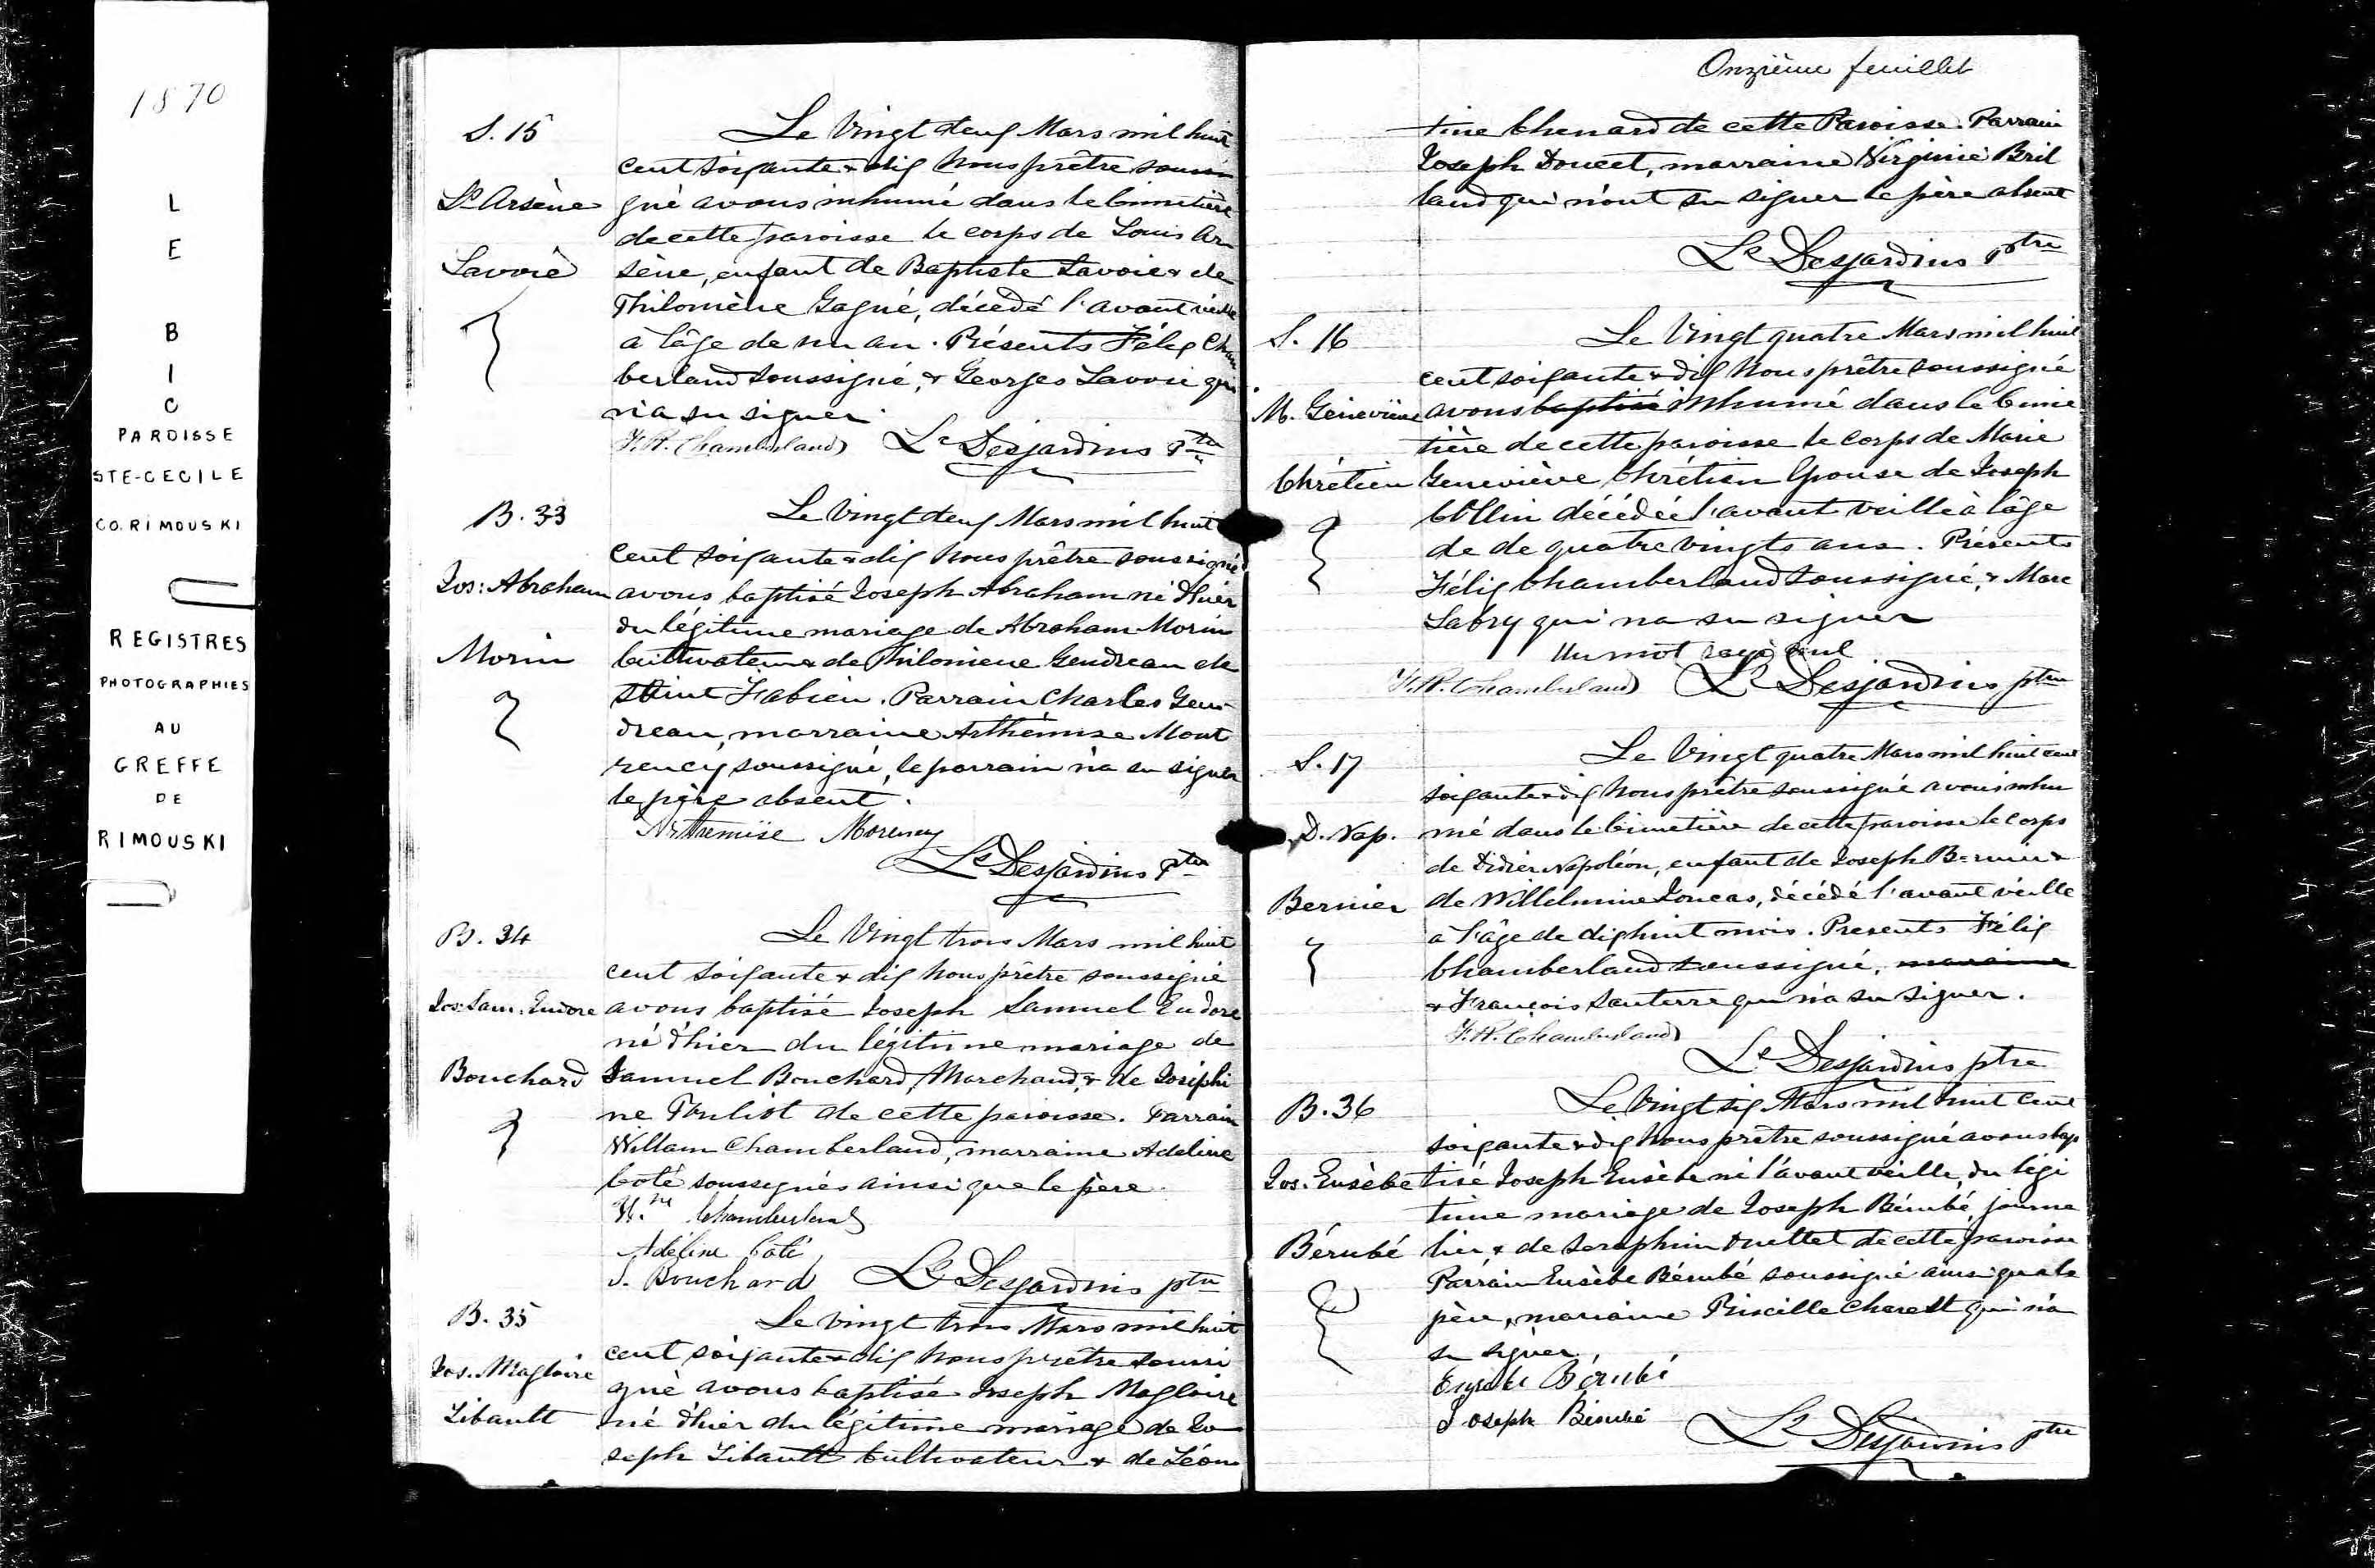 1870
L
E
B
I
C
PAROISSE
STE-CECILE
CO. RIMOUSKI
REGISTRES
PHOTOGRAPHIES
AU
GREFFE
DE
RIMOUSKI
S. 15
Ls Arsène
Lavoie
Le Vingt deux Mars mil huit
cent soixante & dix Nous prêtre soussi
gné avons inhumé dans le Cimetière
de cette paroisse le corps de Louis Ar
sène, enfant de Baptiste Lavoie & de
Philomène Gagné, décédé l'avant veille
à l'âge de un an. Présents Félix Cham
berland soussigné, & Georges Lavoie qui
n'a su signer.
F. H. Chamberland Ls Desjardins Ptre
B. 33
Jos: Abraham
Morin
Le Vingt deux Mars mil huit
cent soixante & dix Nous prêtre soussigné
avons baptisé Joseph Abraham né d'hier
du légitime mariage de Abraham Morin
Cultivateur & de Philomène Gendreau de
Saint Fabien. Parrain Charles Gen
dreau, marraine Arthémise Mont
rency soussigné, le parrain n'a su signer
le père absent.
Arthemise Morency
Ls Desjardins Ptre
B. 34
Jos: Sam: Eudore
Bouchard
Le Vingt trois Mars mil huit
cent soixante & dix Nous prêtre soussigné
avons baptisé Joseph Samuel Eudore
né d'hier du légitime mariage de
Samuel Bouchard, Marchand, & de Joséphi
ne Pouliot de cette paroisse. Parrain
William Chamberland, marraine Adeline
Coté soussignés ainsi que le père.
Wm Chamberland
Adéline Coté
S. Bouchard Ls Desjardins ptre
B. 35
Jos. Magloire
Tibault
Le vingt trois Mars mil huit
cent soixante & dix Nous prêtre soussi
gné avons baptisé Joseph Magloire
né d'hier du légitime mariage de Jo
seph Tibault Cultivateur & de Léon
Onzième feuillet
tine Chenard de cette Paroisse. Parrain
Joseph Doucet, marraine Virginie Bril
land qui n'ont su signer le père absent
Ls Desjardins Ptre
S. 16
M. Geneviève
Chrétien
Le Vingt quatre Mars mil huit
cent soixante & dix Nous prêtre soussigné
avons baptisé inhumé dans le Cime
tière de cette paroisse le corps de Marie
Geneviève Chrétien Epouse de Joseph
Collin décédée l'avant veille à l'âge
de de quatre vingts ans. Présents
Félix Chamberland soussigné, & Marc
Labry qui n'a su signer
Un mot rayé nul
F. H. Chamberland Ls Desjardins ptre
S. 17
D. Nap.
Bernier
Le Vingt quatre Mars mil huit cent
soixante & dix Nous prêtre soussigné avons inhu
mé dans le Cimetière de cette paroisse le corps
de Didier Napoléon, enfant de Joseph Bernier &
de Willelmine Joncas, décédé l'avant veille
à l'âge de dix huit mois. Presents Félix
Chamberland soussigné, marraine
& François Santerre qui n'a su signer.
F. H. Chamberland
Ls Desjardins ptre
B. 36
Jos. Eusèbe
Bérubé
Le Vingt six Mars mil huit cent
soixante & dix Nous prêtre soussigné avons bap
tisé Joseph Eusèbe né l'avant veille, du légi
time mariage de Joseph Bérubé, journa
lier & de Seraphin Ouellet de cette paroisse
Parrain Eusèbe Bérubé soussigné ainsi que le
père, marraine Priscille Charest qui n'a
su signer.
Eusebe Bérubé
Joseph Bérubé
Ls Desjardins Ptre